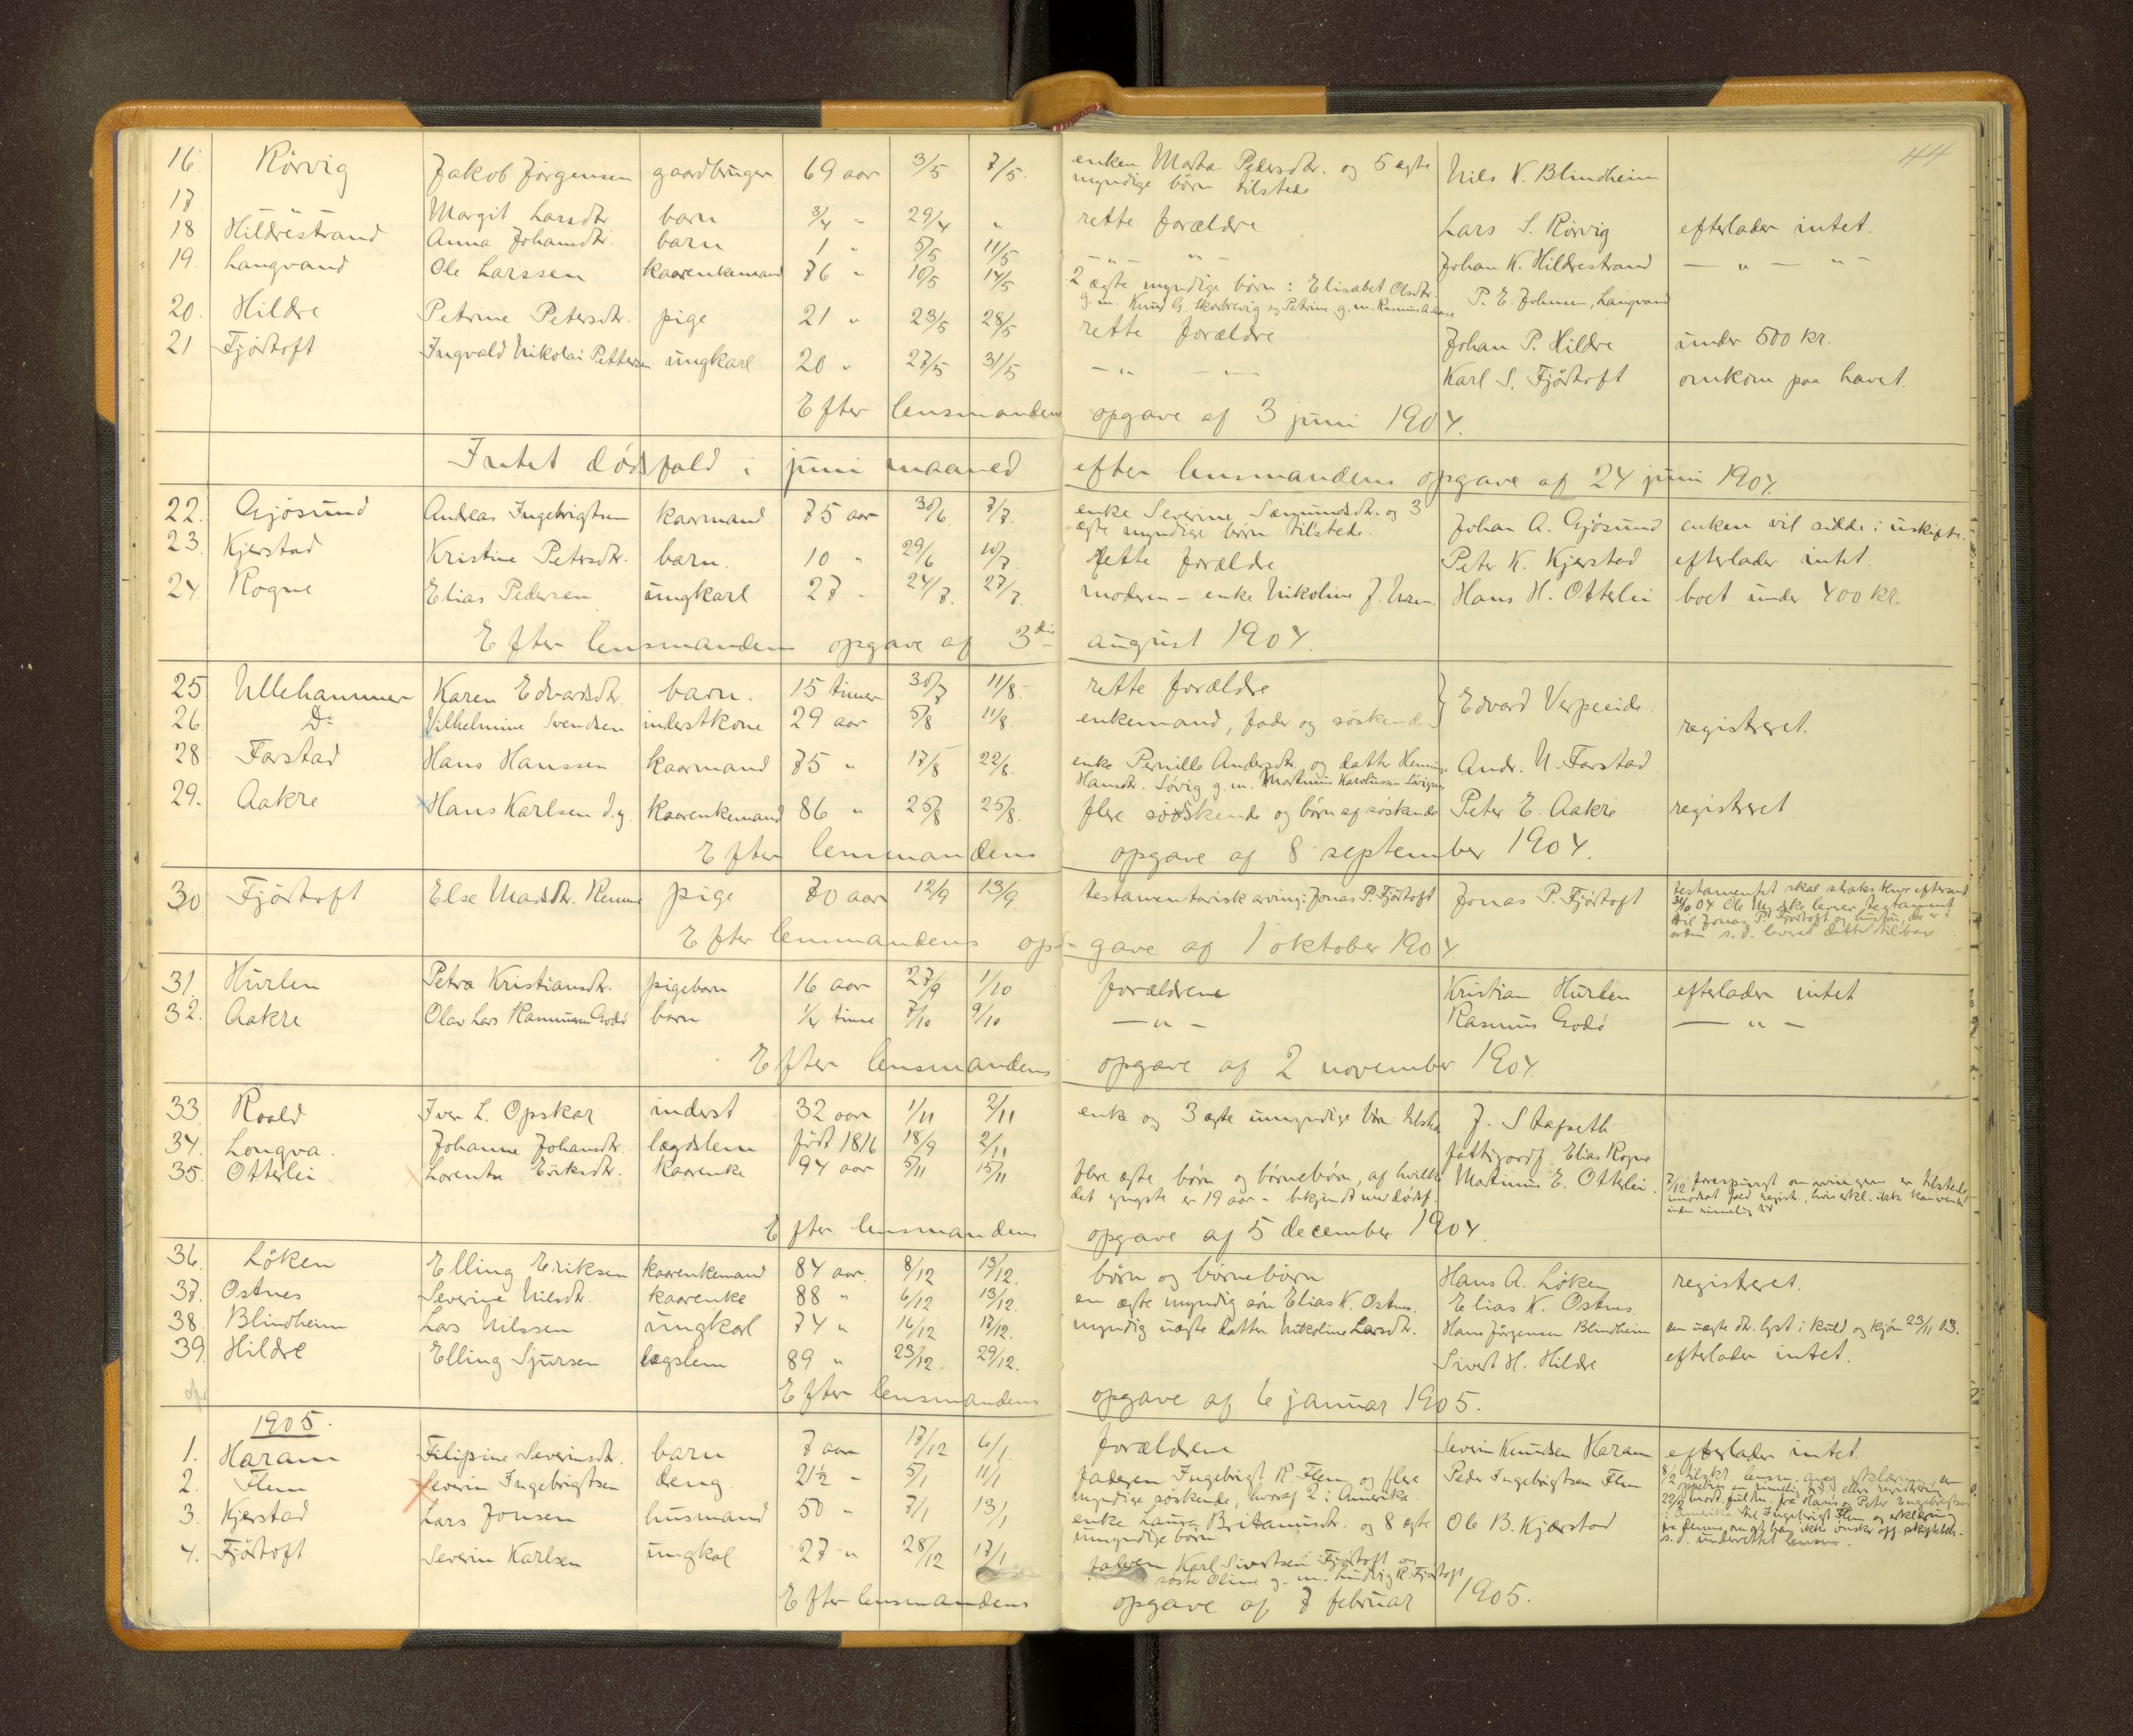 44
16. Rörvig Jakob Jörgensen gaardbruger 69 aar 3/5 7/5. enken Marta Pedersdtr. og 5 ægte Nils K. Blindheim
myndige börn tilstede
17 " Margit Larsdtr. barn 3/4 " 29/4 " rette forældre Lars S. Rörvig efterlader intet.
18 Hildrestrand Anna Johansdtr. barn 1 " 5/5 11/5 – " – " – Johan K. Hildrestrand – " – " –
19. Langvand Ole Larssen kaarenkemand 76 " 10/5 14/5 2 ægte myndige börn: Elisabet Olsdtr. P. E. Johnsen, Langvand
g. m. Knut G. og Petrine g. m. Rasmus
20. Hildre Petrine Petersdtr. pige 21 " 23/5 28/5 rette forældre Johan P. Hildre under 500 kr.
21 Fjörtoft Ingvald Nikolai Pettersen ungkarl 20 " 27/5 31/5 – " – " – Karl S. Fjörtoft omkom paa havet.
Efter lensmandens opgave af 3 juni 1904.
Intet dödsfald i juni maaned efter lensmandens opgave af 24 juni 1904.
22. Gjösund Andreas Ingebrigtsen kaarmand 75 aar 30/6 7/7. enke Severine Sæmundsdtr. og 3 Johan A. Gjösund enken vil sidde i uskifte.
ægte myndige börn tilstede.
23. Kjerstad Kristine Petersdtr. barn. 10 " 29/6 10/7. rette forældre Peter K. Kjerstad efterlader intet.
24. Rogne Elias Pedersen ungkarl 27 - 24/7. 27/7. moderen – enke Nikoline J. Hans H. Otterlei boet under 400 kr.
Efter lensmandens opgave af 3die august 1904.
25 Ullehammer Karen Edvardsdtr. barn. 15 timer 30/7 11/8. rette forældre } Edvard Verpeide.
26. Do Vilhelmine Svendsen inderstkone 29 aar 5/8 11/8. enkemand, fader og söskende registreret.
28 Farstad Hans Hanssen kaarmand 75 " 17/8 22/8. enke Pernille Andersdtr. og datter Andr. N. Farstad
Hansdtr. Lövig g. m. Martinus Karolussen
29. Aakre Hans Karlsen d.y. kaarenkemand 86 " 25/8 25/8. flere söskende og börn af söskende Peter E. Aakre registreret
Efter lensmandens opgave af 8 september 1904.
30 Fjörtoft Else Madsdtr. pige 70 aar 12/9 13/9 testamentarisk arving: Jonas P. Fjörtoft Jonas P. Fjörtoft testamentet skal straks
04 Ole testament
til Jonas P. Fjörtoft og hustru, der er
s. d. leveret dette tilbage
Efter lensmandens op- gave af 1 oktober 1904
31. Hurlen Petra Kristiansdtr. pigebarn 16 aar 27/9 1/10 forældrene Kristian Hurlen efterlader intet
32. Aakre Olav Lars Rasmussen Godö barn 1/4 time 7/10 9/10 – " – Rasmus Godö – " –
Efter lensmandens opgave af 2 november 1904.
33. Roald Iver L. Opskar inderst 32 aar 1/11 2/11 enke og 3 ægte umyndige börn tilstede J. Stafseth
34. Longva. Johanne Johansdtr. lægdslem födt 1816 18/9 2/11 fattigfor. Elias Rogne
35. Otterlei Lorentse Eriksdtr. kaarenke 94 aar 5/11 15/11 flere ægte börn og börnebörn, af hvilke Martinus E. Otterlei. 7/12 forespurgt om arvingerne er tilstede
det yngste er 19 aar – bekjendt med dödsf. modsat fald registr.,
inden rimelig tid
Efter lensmandens opgave af 5 december 1904.
36. Löken Elling Eriksen kaarenkemand 84 aar. 8/12 13/12. börn og börnebörn Hans A. Löken registreret.
37. Ostnes Severine Nilsdtr. kaarenke 88 " 6/12 13/12. en ægte myndig sön Elias K. Ostnes. Elias K. Ostnes.
38. Blindheim Lars Nilssen ungkarl 74 " 16/12 17/12. myndig uægte datter Nikoline Larsdtr. Hans Jörgensen Blindheim den uægte dtr. lyst i kuld og kjön 23/11 03.
39. Hildre Elling Sjursen lægslem 89 " 23/12. 29/12. Sivert H. Hildre efterlader intet.
Efter lensmandens opgave af 6 januar 1905.
1905.
1. Haram Filipine Severinsdtr. barn 7 aar 17/12 6/1. forældrene Severin Knudsen Haram efterlader intet.
2. Flem Severin Ingebrigtsen dreng 21½ - 5/1 11/1 faderen Ingebrigt R. Flem og flere Peder Ingebrigtsen Flem 8/2 tilskr. lensm. ang. erklæring
myndige söskende, hvoraf 2 i Amerika. rimelig tid eller registrering
22/2 modt. fuldm. fra Hans og Peter Ingebrigtsen
3. Kjerstad Lars Jonsen husmand 50 - 7/1 13/1 enke Laura Britanusdtr. og 8 ægte Ole B. Kjærstad i Amerika til Ingebrigt Flem og erklæring
umyndige börn fra denne om at han ikke önsker off. skiftebeh.
s. d. underrettet lensm.
4. Fjörtoft Severin Karlsen ungkal 27 " 28/12 17/1 faderen Karl Sivertsen Fjörtoft og
söster Oline g. m. Ludvig R. Fjörtoft
Efter lensmandens opgave af 7 februar 1905.